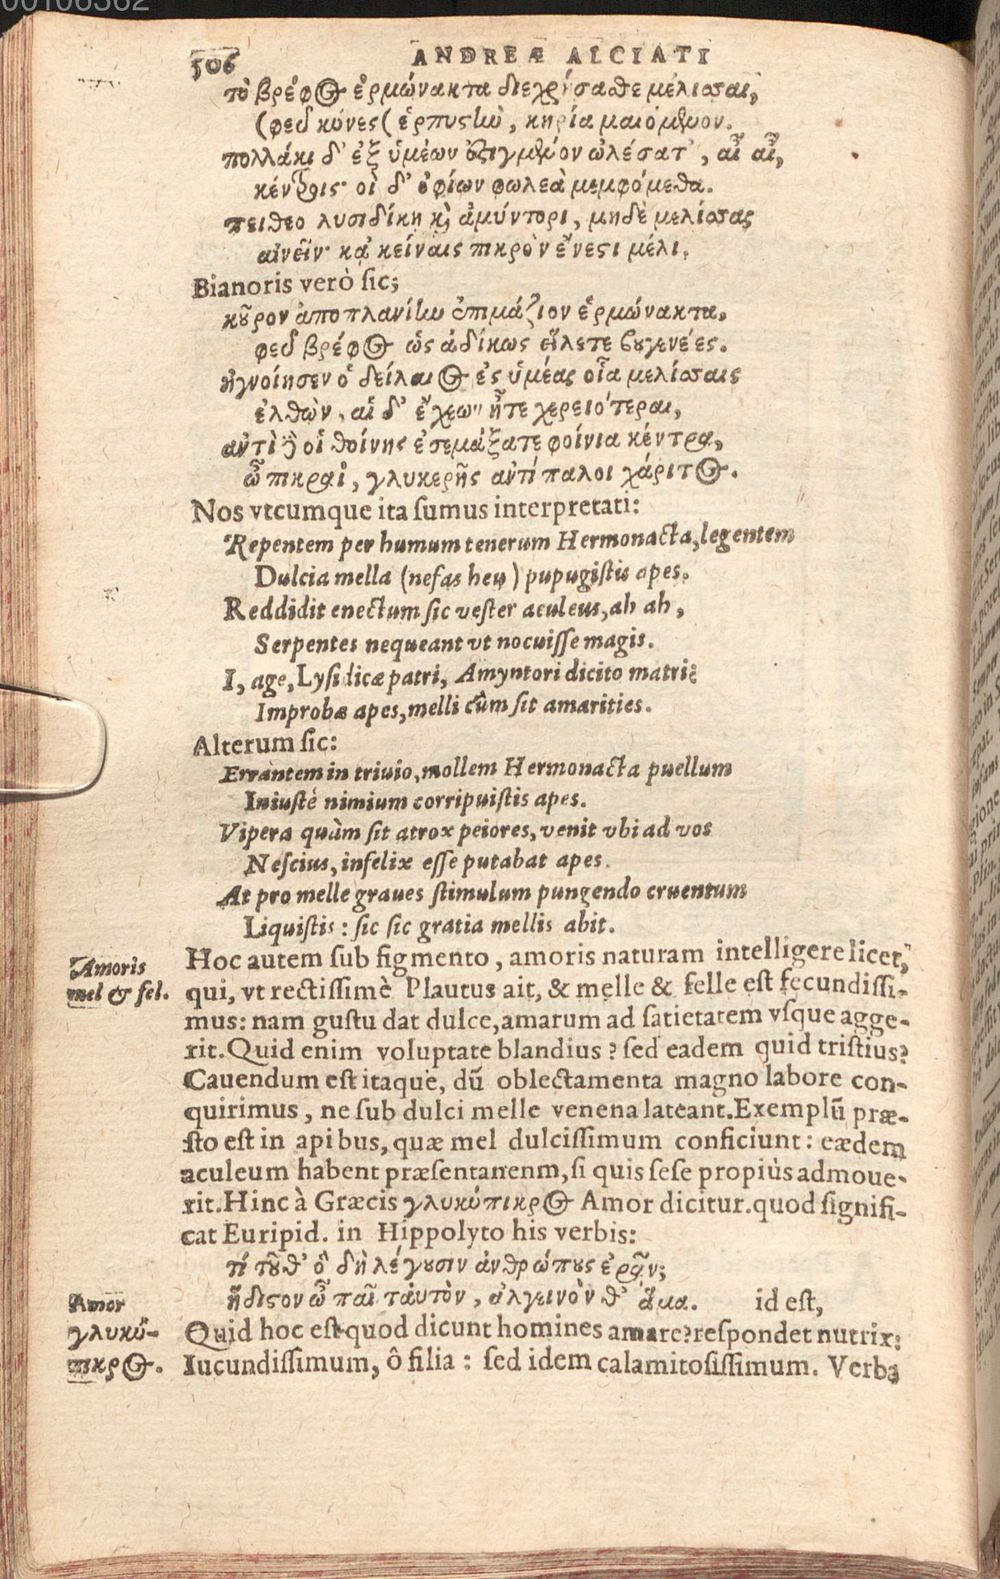 00106362
506 ANDREÆ ALCIATI
τὸ βρέφος ἑρμώνακτα διεχρήσασθε μέλισσαι,
(φεῦ κύνες) ἑρπυστὴν, κηρία μαιόμενον.
πολλάκι δ' ἐξ ὑμέων ἐψιγμένον ὠλέσατ', αἲ αἲ,
κέντροις· οἱ δ' ὀφίων φωλεὰ μεμφόμεθα.
πείθεο λυσιδίκη καὶ ἀμύντορι, μηδὲ μελίσσας
αἰνεῖν· κᾀκείναις πικρὸν ἔνεστι μέλι.
Bianoris verò sic;
κοῦρον ἀποπλανίην ἐπιμάζιον ἑρμώνακτα,
φεῦ βρέφος ὡς ἀδίκως εἵλετε βουγενέες.
ἠγνοίησεν ὁ δείλαιος ἐς ὑμέας οἷα μελίσσας
ἐλθὼν, αἱ δ' ἔχεων ἦτε χερειότεραι,
ἀντὶ δέ οἱ θοίνης ἐνεμάξατε φοίνια κέντρα,
ὦ πικραὶ, γλυκερῆς ἀντίπαλοι χάριτος.
Nos vtcumque ita sumus interpretati:
Repentem per humum tenerum Hermonacta, legentem
Dulcia mella (nefas heu) pupugistis apes.
Reddidit enectum sic vester aculeus, ah ah,
Serpentes nequeant vt nocuisse magis.
I, age, Lysidicæ patri, Amyntori dicito matri;
Improbæ apes, melli cûm sit amarities.
Alterum sic:
Errantem in triuio, mollem Hermonacta puellum
Iniustè nimium corripuistis apes.
Vipera quàm sit atrox peiores, venit vbi ad vos
Nescius, infelix esse putabat apes.
At pro melle graues stimulum pungendo cruentum
Liquistis: sic sic gratia mellis abit.
Amoris
mel & fel.
Hoc autem sub figmento, amoris naturam intelligere licet,
qui, vt rectissimè Plautus ait, & melle & felle est fecundissi-
mus: nam gustu dat dulce, amarum ad satietatem vsque agge-
rit. Quid enim voluptate blandius? sed eadem quid tristius?
Cauendum est itaque, dũ oblectamenta magno labore con-
quirimus, ne sub dulci melle venena lateant. Exemplũ præ-
sto est in apibus, quæ mel dulcissimum conficiunt: eædem
aculeum habent præsentanenm, si quis sese propiùs admoue-
rit. Hinc à Græcis γλυκύπικρος Amor dicitur. quod signifi-
cat Euripid. in Hippolyto his verbis:
τί τοῦθ' ὃ δὴ λέγουσιν ἀνθρώπους ἐρᾷν;
ἥδιστον ὦ παῖ ταὐτὸν, ἀλγεινὸν θ' ἅμα. id est,
Amor
γλυκύ-
πικρος.
Quid hoc est quod dicunt homines amare? respondet nutrix:
Iucundissimum, ô filia: sed idem calamitosissimum. Verba